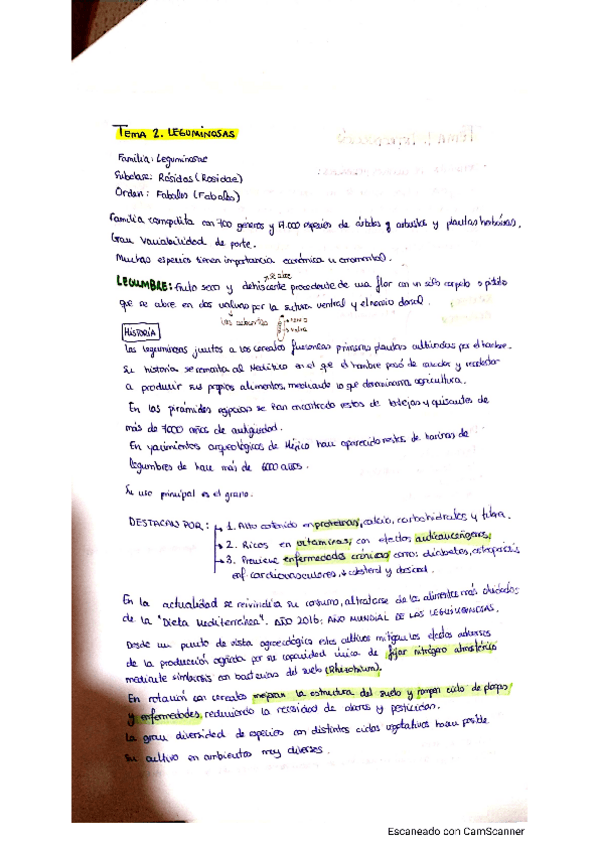 TEMA 2. LEGUMINOSAS
Familia: Leguminosae
Subclase: Rósidas (Rosidae)
Orden: Fabales (Fabales)
Familia compleja con 700 géneros y 17.000 especies de árboles y arbustos y plantas herbáceas.
Gran variabilidad de porte.
Muchas especies tienen importancia económica u ornamental.
se abre
LEGUMBRE: Fruto seco y dehiscente procedente de una flor con un sólo carpelo o pistilo
que se abre en dos valvas por la sutura ventral y el nervio dorsal.
HISTORIA
Las leguminosas juntos a los cereales fueron las primeras plantas cultivadas por el hombre.
Su historia se remonta al Neolítico en el que el hombre pasó de cazador y recolector
a producir sus propios alimentos, mediante lo que denominamos agricultura.
En las pirámides egipcias se han encontrado restos de lentejas y guisantes de
más de 7000 años de antigüedad.
En yacimientos arqueológicos de México han aparecido restos de harinas de
legumbres de hace más de 6000 años.
Su uso principal es el grano.
DESTACAN POR: 1. Alto contenido en proteínas, calcio, carbohidratos y fibra.
2. Ricos en vitaminas, con efectos anticancerígenos,
3. Previene enfermedades crónicas como: diabetes, osteoporosis
enf. cardiovasculares, ↓ colesterol y obesidad.
En la actualidad se reivindica su consumo, al tratarse de los alimentos más olvidados
de la "Dieta Mediterránea". AÑO 2016: AÑO MUNDIAL DE LAS LEGUMINOSAS.
Desde un punto de vista agroecológico estos cultivos mitigan los efectos adversos
de la producción agrícola por su capacidad única de fijar nitrógeno atmosférico
mediante simbiosis con bacterias del suelo (Rhizobium).
En rotación con cereales mejoran la estructura del suelo y rompen ciclo de plagas
y enfermedades, reduciendo la necesidad de abonos y pesticidas.
La gran diversidad de especies con distintos ciclos vegetativos hacen posible
su cultivo en ambientes muy diversos.
Escaneado con CamScanner